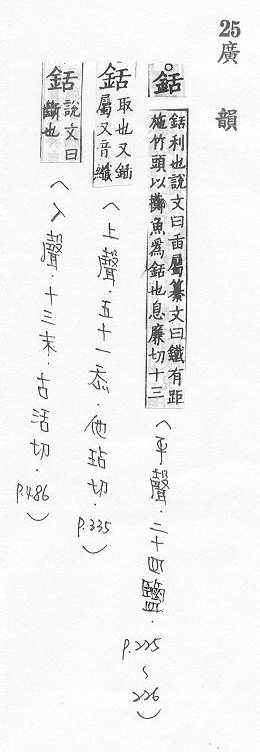 25
廣韻
銛
銛利也說文曰臿屬纂文曰鐵有距
施竹頭以擲魚為銛也息廉切十三
(平聲．二十四鹽．P.225~226)
銛
取也又鍤
屬又音纖
(上聲．五十一忝．他玷切．P.335)
銛
說文曰
斷也
(入聲．十三末．古活切．P.486)